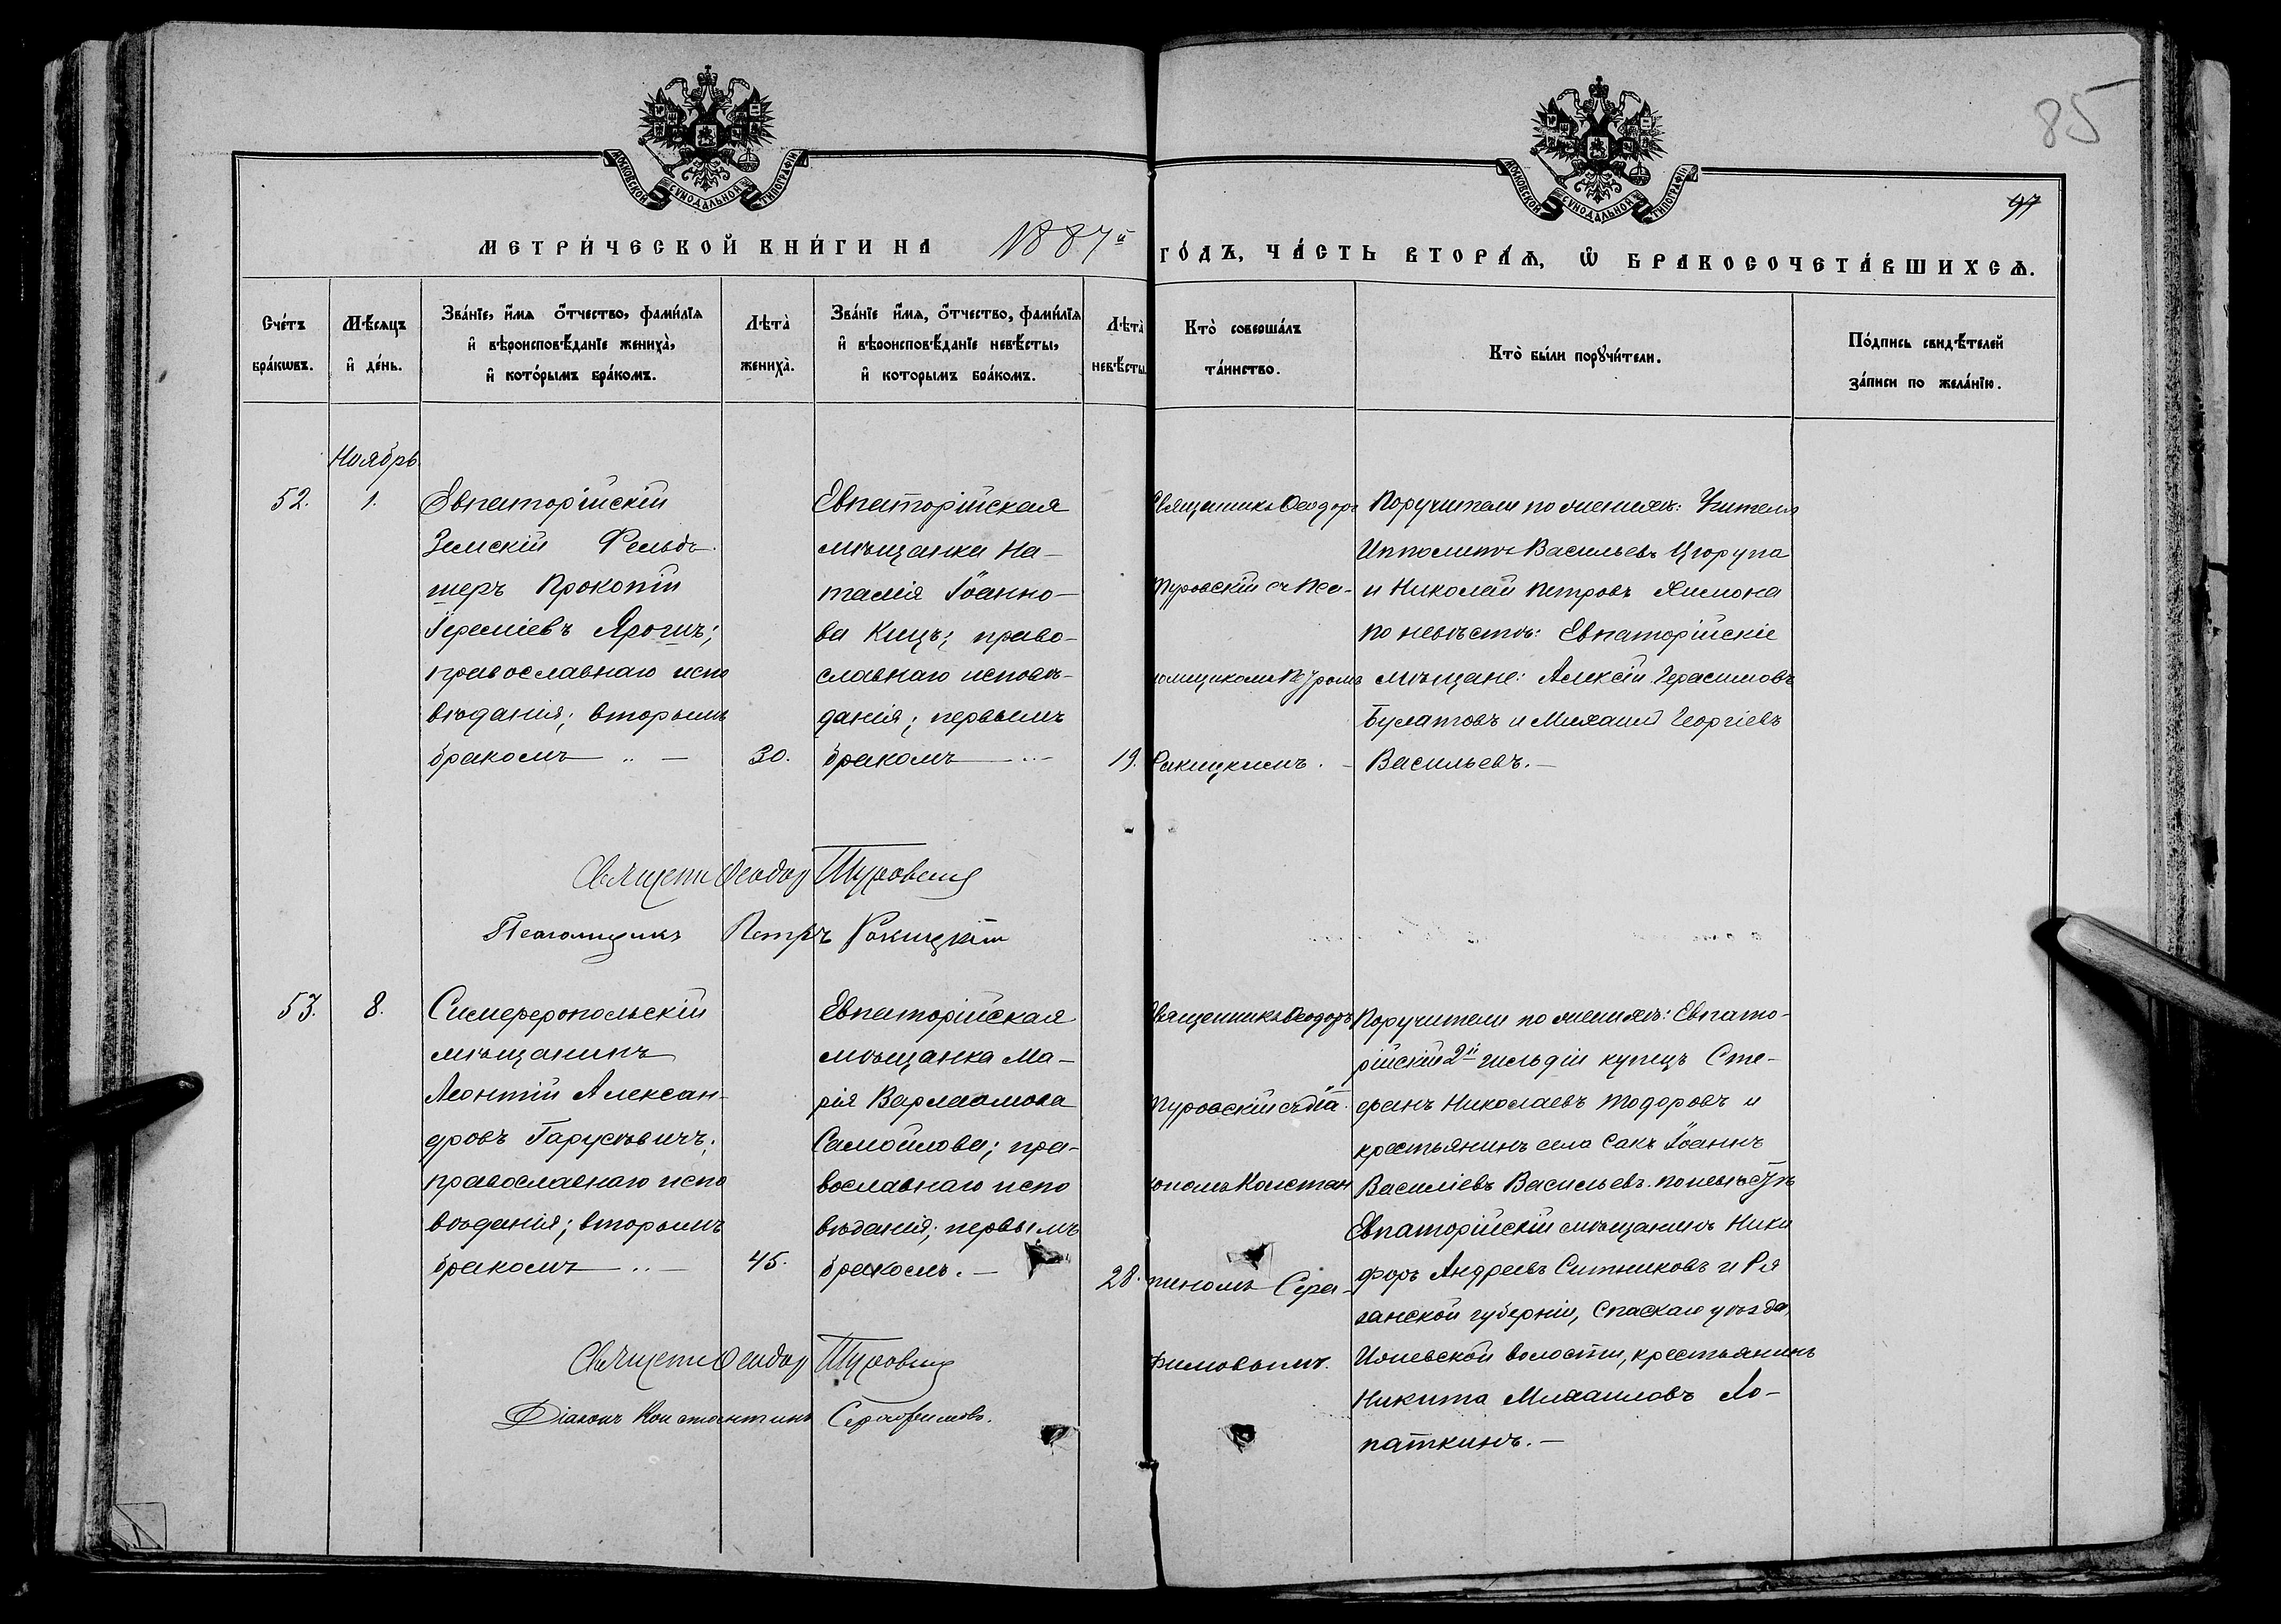 85
97
МОСКОВСКОЙ СѴНОДАЛЬНОЙ ТИПОГРАФІИ
МОСКОВСКОЙ СѴНОДАЛЬНОЙ ТИПОГРАФІИ
МЕТРИ́ЧЕСКОЙ КНИ́ГИ НА 1887й ГО́ДЪ, ЧА́СТЬ ВТОРА́Ѧ, Ѡ҆ БРАКОСОЧЕТА́ВШИХСѦ.
Сче́тъ бра́кωвъ.
Мѣ́сяцъ и҆ де́нь.
Зва́нїе, и҆́мѧ ѻ҆́тчество, фами́лїѧ
и҆ вѣроисповѣ́данїе жениха̀,
и҆ кото́рымъ бра́комъ.
Лѣта̀ жениха̀.
Зва́нїе и҆́мѧ, ѻ҆́тчество, фами́лїѧ
и҆ вѣроисповѣ́данїе невѣ́сты,
и҆ которымъ бра́комъ.
Лѣта̀ невѣ́сты.
Кто̀ совершáлъ
та́инство.
Кто̀ бы́ли порꙋчи́тели.
По́дпись свидѣ́телей
за́писи по жела́нїю.
Ноябрь
52.
1.
Евпаторійскій
Земскій Фельд-
шеръ Прокопій
Іереміевъ Ярошъ;
православнаго испо
вѣданія; вторымъ
бракомъ
30.
Евпаторійская
мѣщанка На-
талія Іоанно-
ва Кицъ; право-
славнаго исповѣ-
данія; первымъ
бракомъ
19.
Священникъ Ѳеодоръ
Туровскій съ Пса-
ломщикомъ Петромъ
Ракицкимъ.
Поручители по женихѣ: Учителя
Ипполитъ Васильевъ Цюрупа
и Николай Петровъ
по невѣстѣ: Евпаторійскіе
мѣщане: Алексій Герасимовъ
Булатовъ и Михаилъ Георгіевъ
Васильевъ.
Священ Ѳеодор Туровскій
Псаломщикъ Петръ Ракицкій
53.
8.
Симферопольскій
мѣщанинъ
Леонтій Алексан-
дровъ Гарусѣвичъ;
православнаго испо
вѣданія; вторымъ
бракомъ
45.
Евпаторійская
мѣщанка Ма-
рія Варлаамова
Самойлова; пра-
вославнаго испо
вѣданія; первымъ
бракомъ.
28.
Священникъ Ѳеодоръ
Туровскій съ діа-
кономъ Констан
тиномъ Сера-
фимовымъ.
Поручители по женихѣ: Евпато-
рійскій 2й гильдіи купецъ Сте-
фанъ Николаевъ Тодоровъ и
крестьянинъ села Сакъ Іоаннъ
Василіевъ Васильевъ. по невѣстѣ
Евпаторійскій мѣщанинъ Ники
форъ Андреевъ Ситниковъ и Ря
занской губерніи, Спаскаго уѣзда,
волости, крестьянинъ
Никита Михаиловъ Ло-
паткинъ.
Священ Ѳеодор Туровскій
Діаконъ Константинъ Серафимовъ.